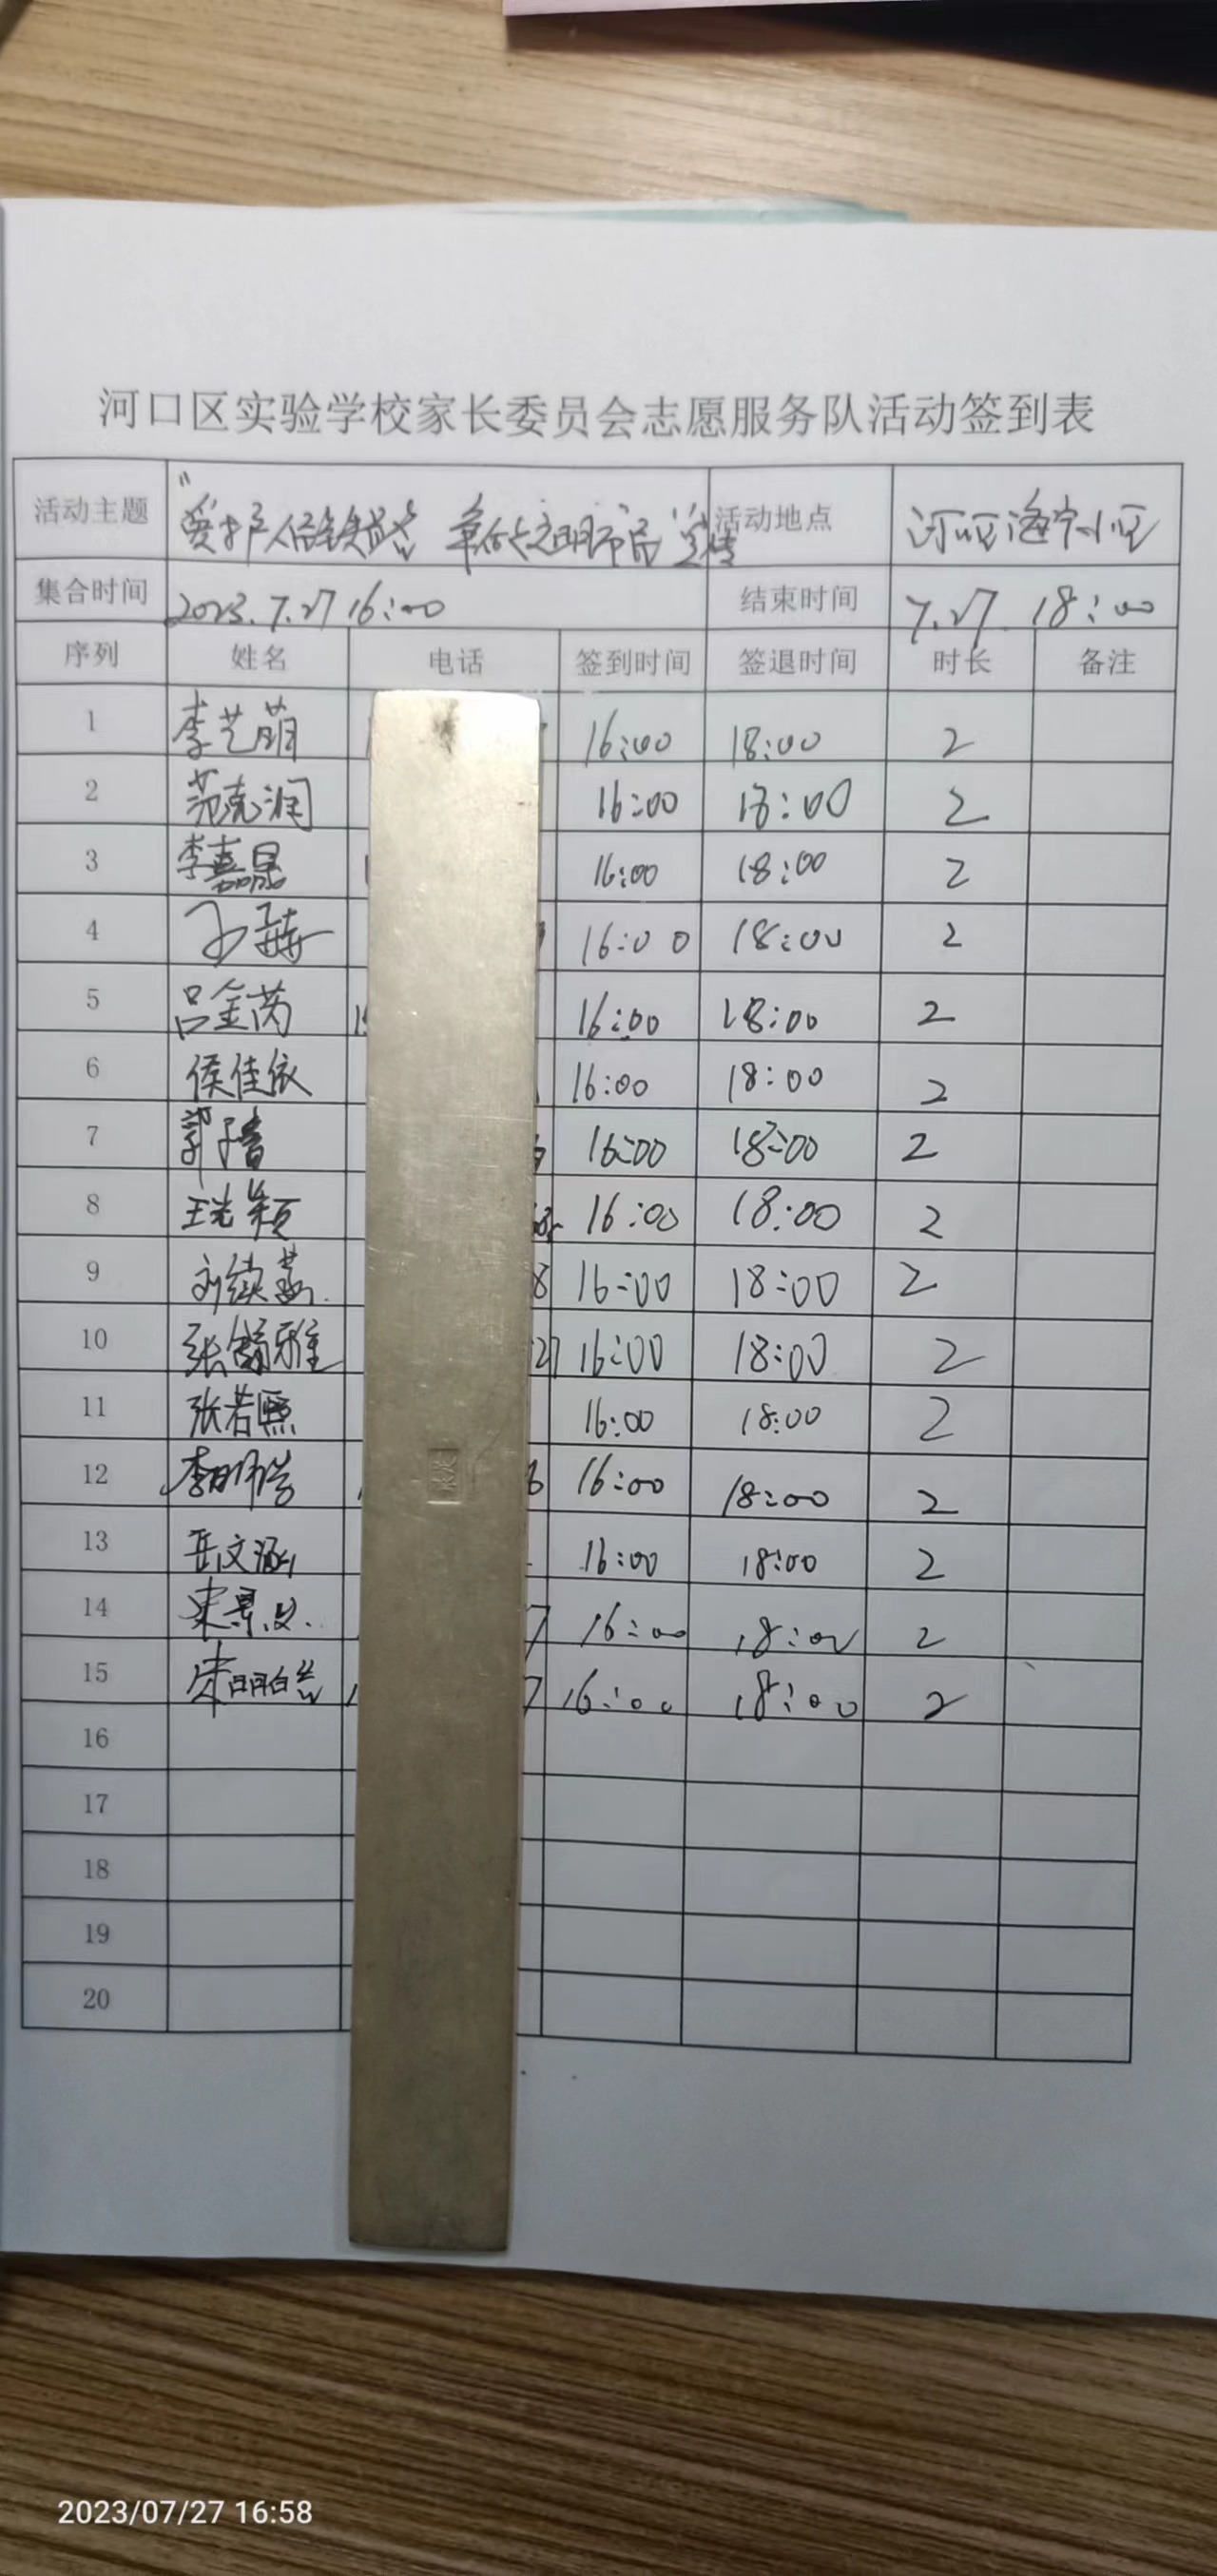 河口区实验学校家长委员会志愿服务队活动签到表
活动主题 争做文明市民 活动地点 河口区海宁小区
集合时间 2023.7.27 16:00 结束时间 7.27 18:00
序列 姓名 电话 签到时间 签退时间 时长 备注
1 李艺萌 16:00 18:00 2
2 范克润 16:00 18:00 2
3 李嘉晟 16:00 18:00 2
4 16:00 18:00 2
5 吕金芮 16:00 18:00 2
6 侯佳依 16:00 18:00 2
7 郭子睿 16:00 18:00 2
8 16:00 18:00 2
9 8 16:00 18:00 2
10 27 16:00 18:00 2
11 张若熙 16:00 18:00 2
12 李明浩 6 16:00 18:00 2
13 岳文涵 16:00 18:00 2
14 7 16:00 18:00 2
15 7 16:00 18:00 2
16
17
18
19
20
2023/07/27 16:58